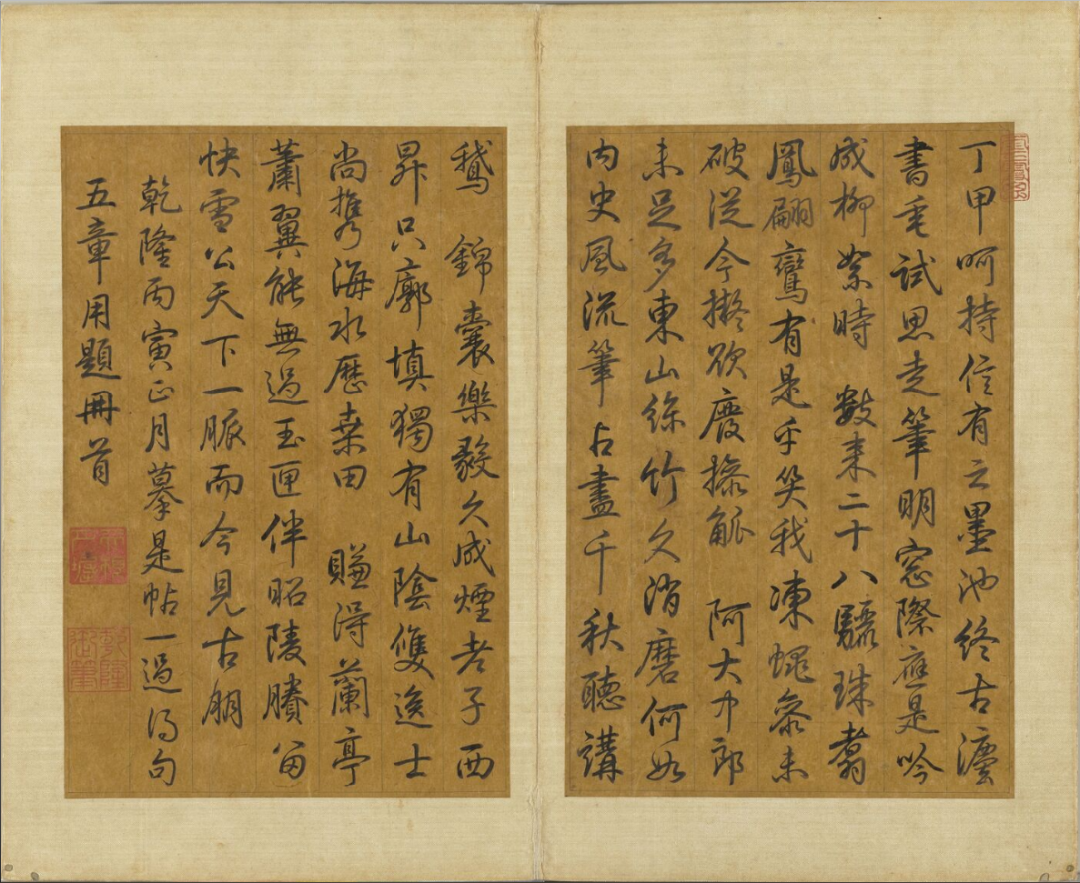 丁甲呵持信有之墨池終古灋
書垂試思走筆明窓際應是吟
成柳絮時 數来二十八驪珠翥
鳳翩鸞有是乎笑我凍蠅叅未
破從今擬欲廢操觚 阿大中郎
未足多東山絲竹久消磨何如
内史風流筆占盡千秋聽講
鵞 錦囊樂毅久成煙老子西
昇只廓填獨有山陰雙逸士
尚携海水歷桑田 賺得蘭亭
蕭翼能無過玉匣伴昭陵賸留
快雪公天下一脈而今見古朋
乾隆丙寅正月摹是帖一過得句
五章用題冊首
乾隆御筆